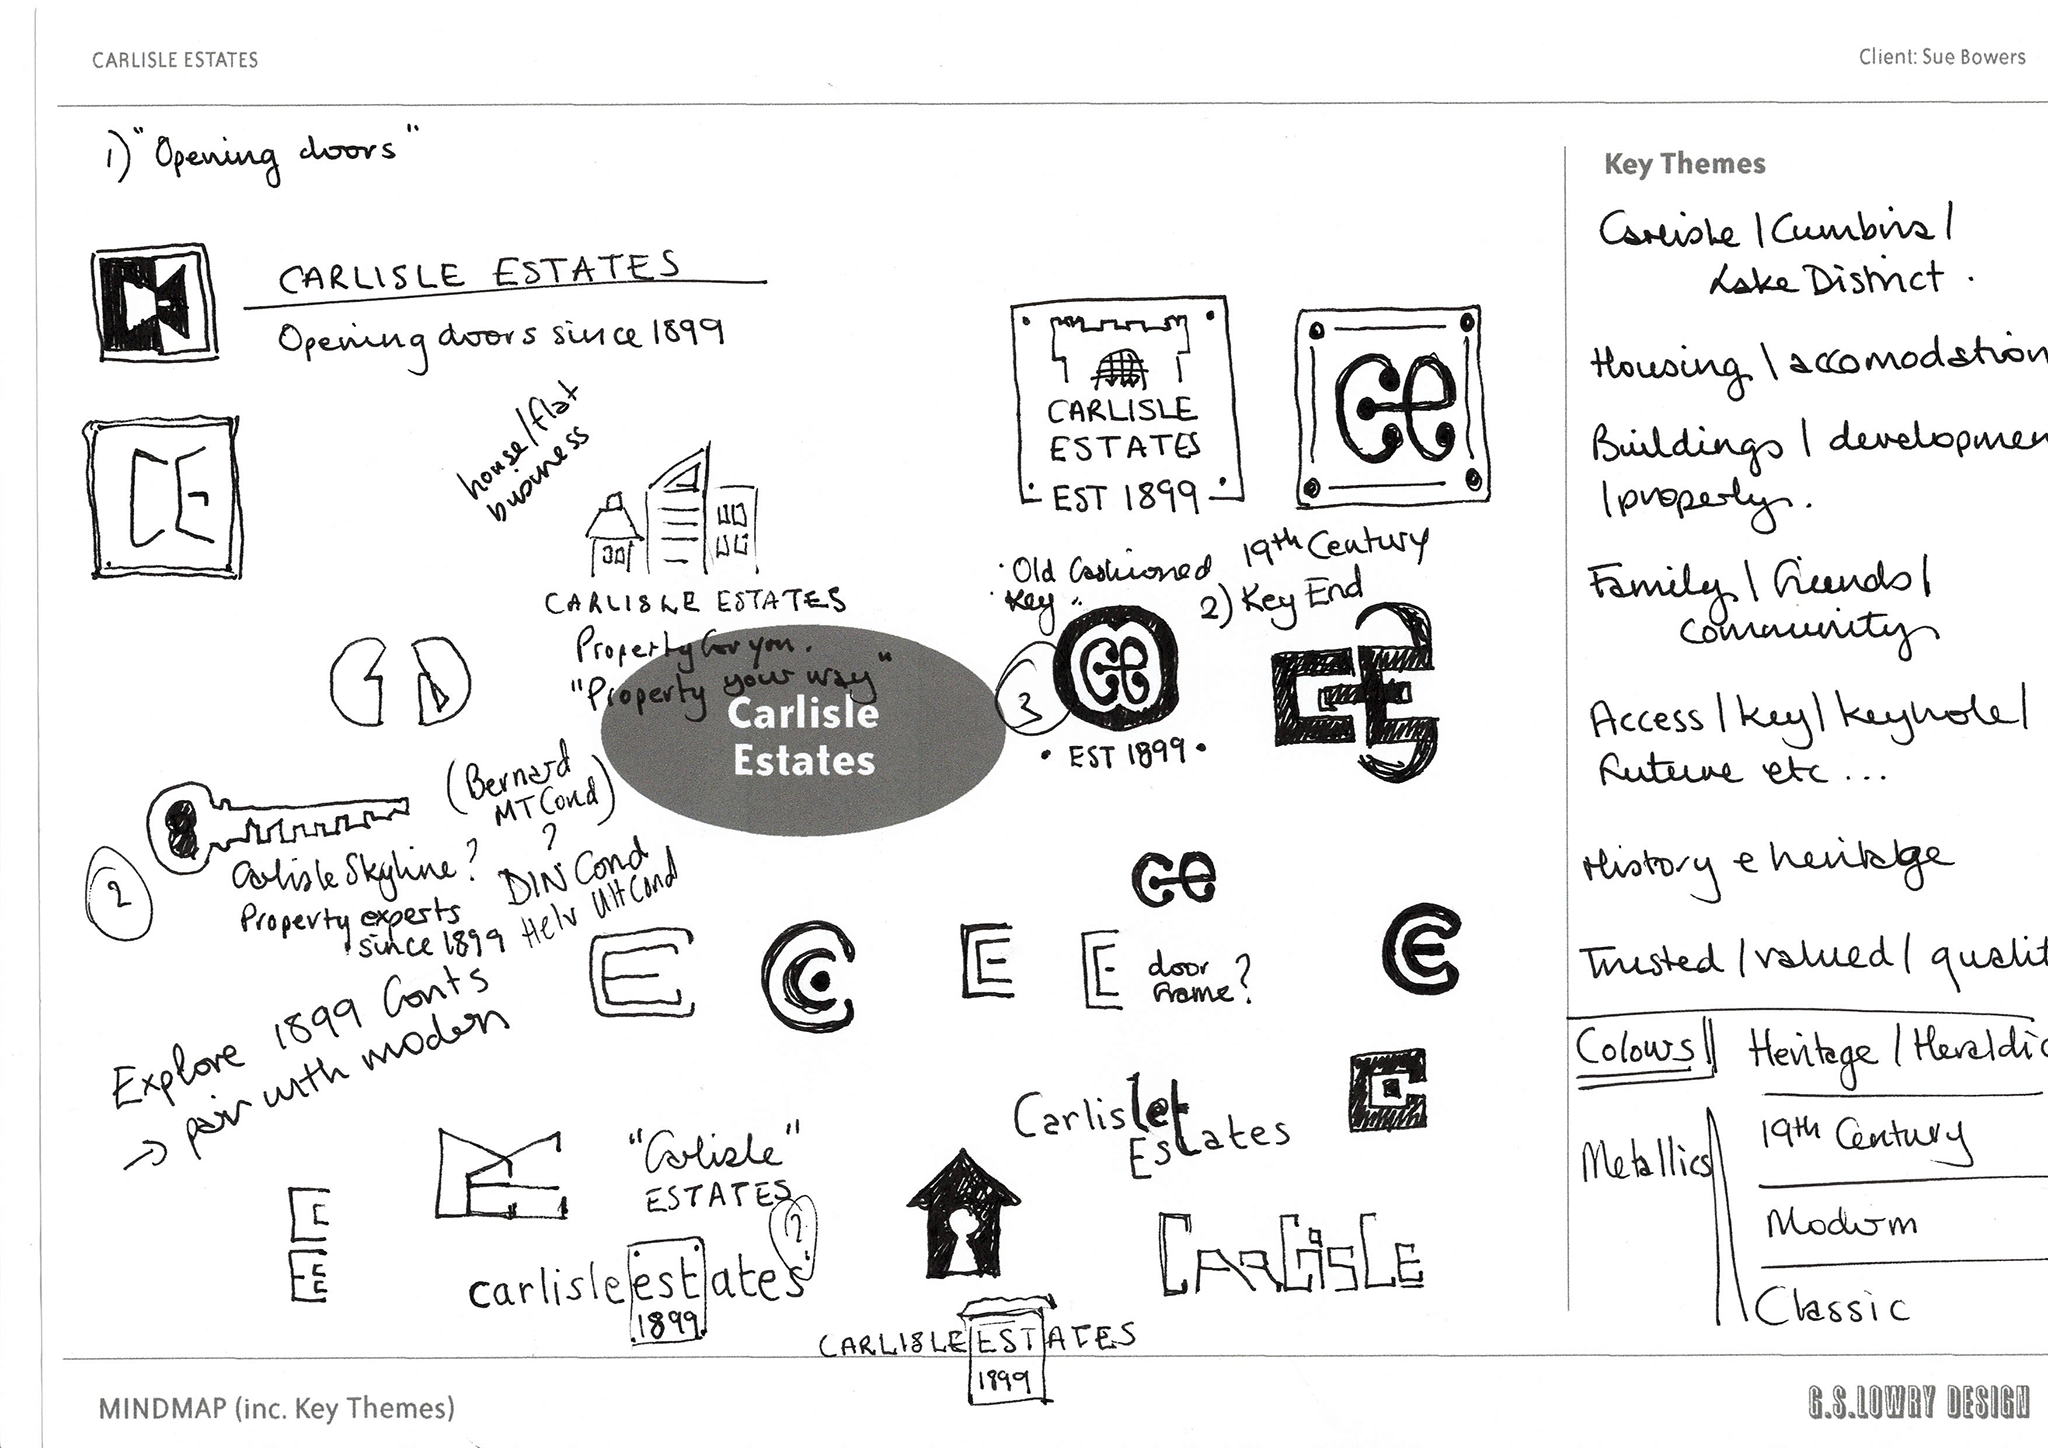 CARLISLE ESTATES
Client: Sue Bowers
1) "Opening doors"
CARLISLE ESTATES
Opening doors since 1899
house/flat
business
CARLISLE ESTATES
Property for you.
"Property your way"
Carlisle
Estates
CARLISLE
ESTATES
EST 1899
ce
Old fashioned
Key
19th Century
2) Key End
3
ce
EST 1899
2
Carlisle Skyline?
Property experts
since 1899
(Bernard
MT Cond)
?
DIN Cond
Helv Ult Cond
Explore 1899 fonts
→ pair with modern
ce
door
frame?
"Carlisle"
ESTATES
?
carlisleestates
1899
Carlislet
Estates
CARLISLE
CARLISLE ESTATES
1899
Key Themes
Carlisle / Cumbria /
Lake District.
Housing / accomodation
Buildings / developmen
/ property.
Family / friends /
community
Access / key / keyhole /
future etc ...
History & heritage
Trusted / valued / qualit
Colours
Heritage / Heraldic
19th Century
Metallics
Modern
Classic
MINDMAP (inc. Key Themes)
G.S.LOWRY DESIGN